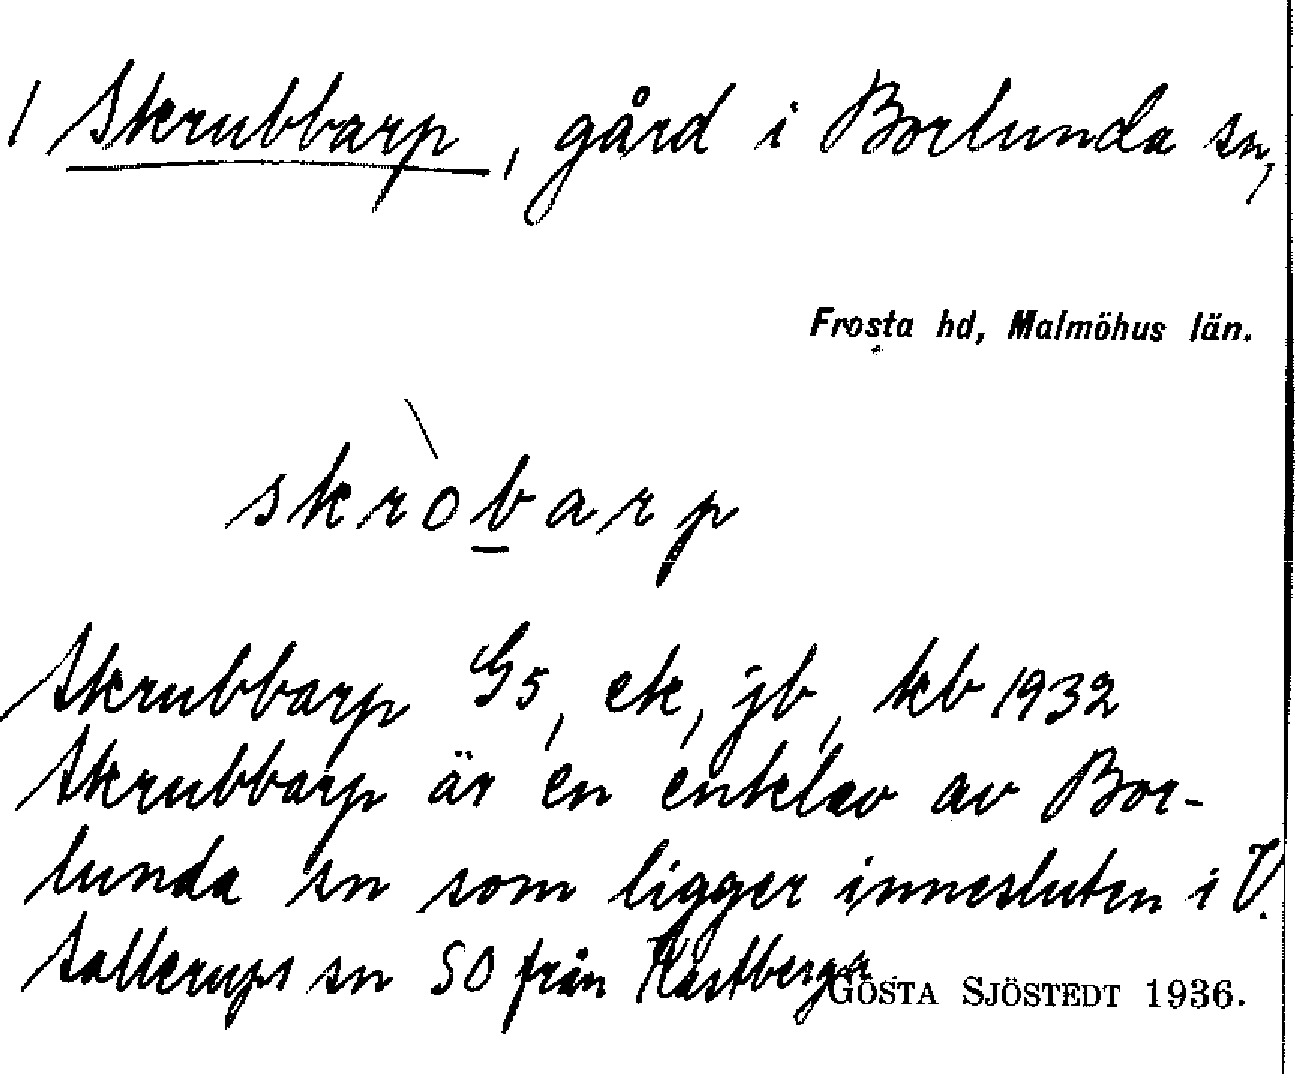 1 Skrubbarp, gård i Borlunda sn,
Frosta hd, Malmöhus län.
skròb̲arp
Skrubbarp G5, ek, jb, kb 1932
Skrubbarp är en enklav av Bor-
lunda sn som ligger innesluten i V.
Sallerups sn SO från Kastberga
GÖSTA SJÖSTEDT 1936.